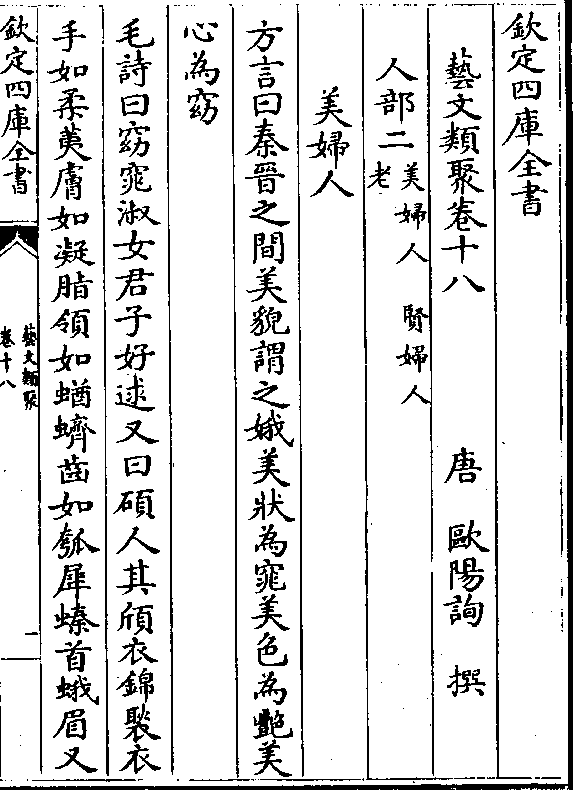 欽定四庫全書
藝文類聚卷十八
唐 歐陽詢 撰
人部二 美婦人 賢婦人
老
美婦人
方言曰秦晉之間美貌謂之娥美狀為窕美色為豔美
心為窈
毛詩曰窈窕淑女君子好逑又曰碩人其頎衣錦褧衣
手如柔荑膚如凝脂領如蝤蠐齒如瓠犀螓首蛾眉又
欽定四庫全書
藝文類聚
卷十八
一